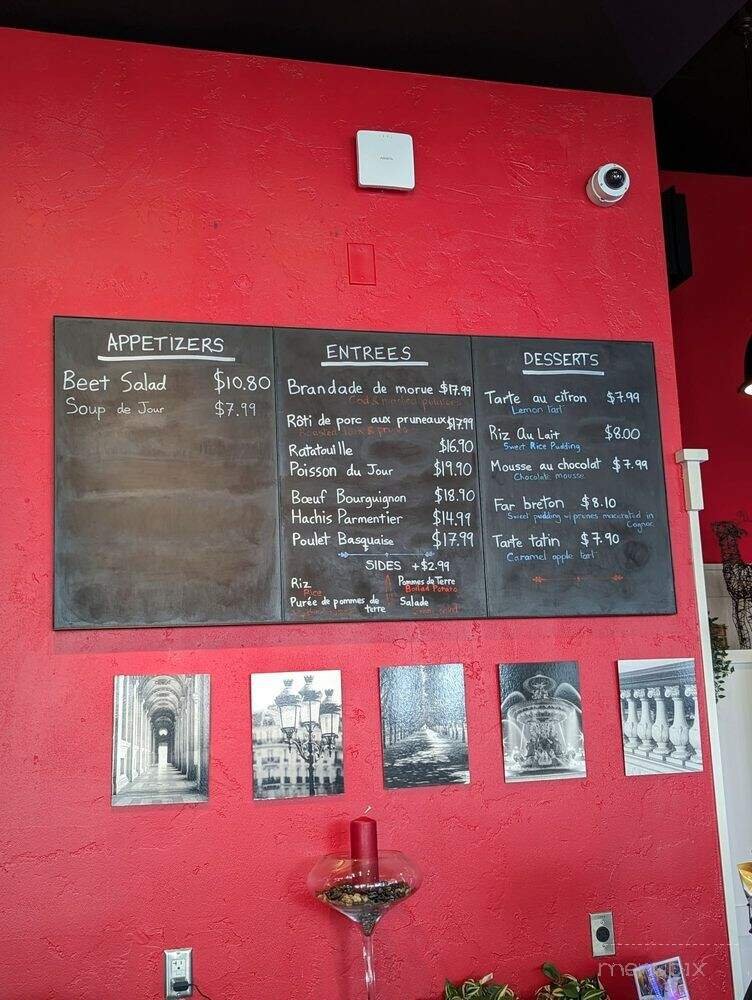 APPETIZERS
Beet Salad $10.80
Soup de Jour $7.99
ENTREES
Brandade de morue $17.99
Cod & mashed potatoes
Râti de porc aux pruneaux $17.99
Roasted pork & prunes
Ratatouille $16.90
Poisson du Jour $19.90
Bœuf Bourguignon $18.90
Hachis Parmentier $14.99
Poulet Basquaise $17.99
SIDES +$2.99
Riz
Rice
Purée de pommes de
terre
Pommes de Terre
Boiled Potato
Salade
DESSERTS
Tarte au citron $7.99
Lemon tart
Riz Au Lait $8.00
Sweet Rice Pudding
Mousse au chocolat $7.99
Chocolate mousse
Far breton $8.10
Sweet pudding w/ prunes macerated in
Cognac
Tarte tatin $7.90
Caramel apple tart
menupix